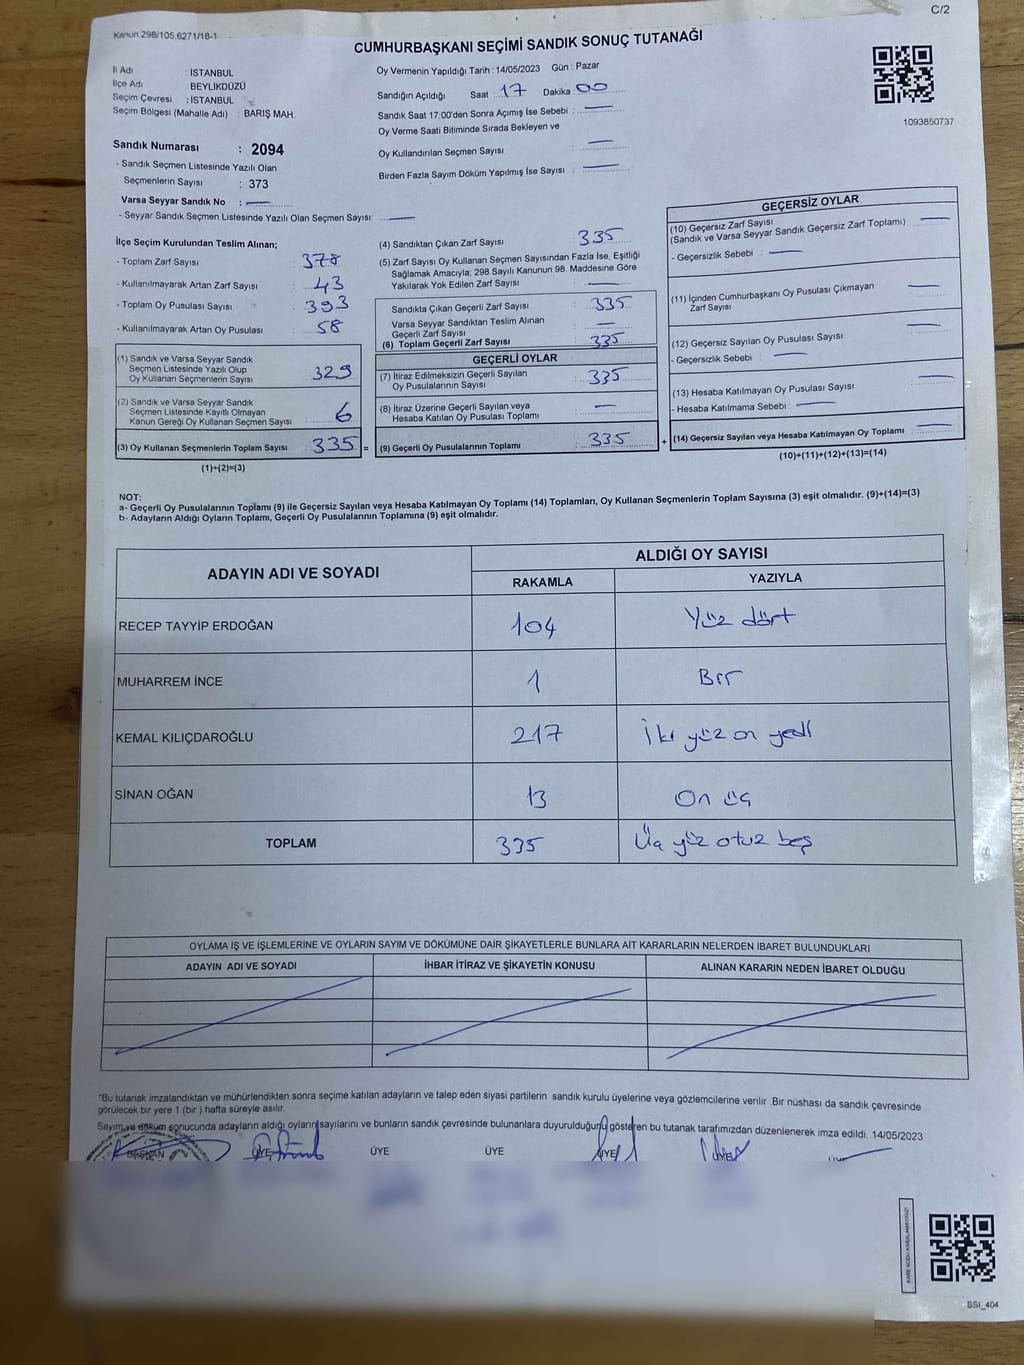 C/2
Kanun 298/105,6271/18-1
CUMHURBAŞKANI SEÇİMİ SANDIK SONUÇ TUTANAĞI
İl Adı : İSTANBUL
İlçe Adı BEYLİKDÜZÜ
Seçim Çevresi : İSTANBUL
Seçim Bölgesi (Mahalle Adı) : BARIŞ MAH.
Sandık Numarası : 2094
- Sandık Seçmen Listesinde Yazılı Olan
Seçmenlerin Sayısı : 373
Varsa Seyyar Sandık No :
- Seyyar Sandık Seçmen Listesinde Yazılı Olan Seçmen Sayısı:
Oy Vermenin Yapıldığı Tarih : 14/05/2023 Gün : Pazar
Sandığın Açıldığı Saat 17 Dakika 00
Sandık Saat 17:00'den Sonra Açılmış İse Sebebi :
Oy Verme Saati Bitiminde Sırada Bekleyen ve
Oy Kullandırılan Seçmen Sayısı :
Birden Fazla Sayım Döküm Yapılmış İse Sayısı :
1093850737
İlçe Seçim Kurulundan Teslim Alınan;
- Toplam Zarf Sayısı : 378
- Kullanılmayarak Artan Zarf Sayısı : 43
- Toplam Oy Pusulası Sayısı : 393
- Kullanılmayarak Artan Oy Pusulası : 58
(1) Sandık ve Varsa Seyyar Sandık
Seçmen Listesinde Yazılı Olup
Oy Kullanan Seçmenlerin Sayısı : 329
(2) Sandık ve Varsa Seyyar Sandık
Seçmen Listesinde Kayıtlı Olmayan
Kanun Gereği Oy Kullanan Seçmen Sayısı : 6
(3) Oy Kullanan Seçmenlerin Toplam Sayısı : 335 =
(1)+(2)=(3)
(4) Sandıktan Çıkan Zarf Sayısı : 335
(5) Zarf Sayısı Oy Kullanan Seçmen Sayısından Fazla İse, Eşitliği
Sağlamak Amacıyla; 298 Sayılı Kanunun 98. Maddesine Göre
Yakılarak Yok Edilen Zarf Sayısı :
Sandıkta Çıkan Geçerli Zarf Sayısı : 335
Varsa Seyyar Sandıktan Teslim Alınan
Geçerli Zarf Sayısı :
(6) Toplam Geçerli Zarf Sayısı : 335
GEÇERLİ OYLAR
(7) İtiraz Edilmeksizin Geçerli Sayılan
Oy Pusulalarının Sayısı : 335
(8) İtiraz Üzerine Geçerli Sayılan veya
Hesaba Katılan Oy Pusulası Toplamı :
(9) Geçerli Oy Pusulalarının Toplamı : 335 +
GEÇERSİZ OYLAR
(10) Geçersiz Zarf Sayısı
(Sandık ve Varsa Seyyar Sandık Geçersiz Zarf Toplamı) :
- Geçersizlik Sebebi :
(11) İçinden Cumhurbaşkanı Oy Pusulası Çıkmayan
Zarf Sayısı :
(12) Geçersiz Sayılan Oy Pusulası Sayısı :
- Geçersizlik Sebebi :
(13) Hesaba Katılmayan Oy Pusulası Sayısı :
- Hesaba Katılmama Sebebi :
(14) Geçersiz Sayılan veya Hesaba Katılmayan Oy Toplamı :
(10)+(11)+(12)+(13)=(14)
NOT:
a- Geçerli Oy Pusulalarının Toplamı (9) ile Geçersiz Sayılan veya Hesaba Katılmayan Oy Toplamı (14) Toplamları, Oy Kullanan Seçmenlerin Toplam Sayısına (3) eşit olmalıdır. (9)+(14)=(3)
b- Adayların Aldığı Oyların Toplamı, Geçerli Oy Pusulalarının Toplamına (9) eşit olmalıdır.
ADAYIN ADI VE SOYADI ALDIĞI OY SAYISI
RAKAMLA YAZIYLA
RECEP TAYYİP ERDOĞAN 104 Yüz dört
MUHARREM İNCE 1 Bir
KEMAL KILIÇDAROĞLU 217 İki yüz on yedi
SİNAN OĞAN 13 On üç
TOPLAM 335 Üç yüz otuz beş
OYLAMA İŞ VE İŞLEMLERİNE VE OYLARIN SAYIM VE DÖKÜMÜNE DAİR ŞİKAYETLERLE BUNLARA AİT KARARLARIN NELERDEN İBARET BULUNDUKLARI
ADAYIN ADI VE SOYADI İHBAR İTİRAZ VE ŞİKAYETİN KONUSU ALINAN KARARIN NEDEN İBARET OLDUĞU
"Bu tutanak imzalandıktan ve mühürlendikten sonra seçime katılan adayların ve talep eden siyasi partilerin sandık kurulu üyelerine veya gözlemcilerine verilir. Bir nüshası da sandık çevresinde
görülecek bir yere 1 (bir ) hafta süreyle asılır.
Sayım ve döküm sonucunda adayların aldığı oyların sayılarını ve bunların sandık çevresinde bulunanlara duyurulduğunu gösteren bu tutanak tarafımızdan düzenlenerek imza edildi. 14/05/2023
BAŞKAN ÜYE ÜYE ÜYE ÜYE ÜYE
KARE KODU KARALAMAYINIZ!
SSI_404